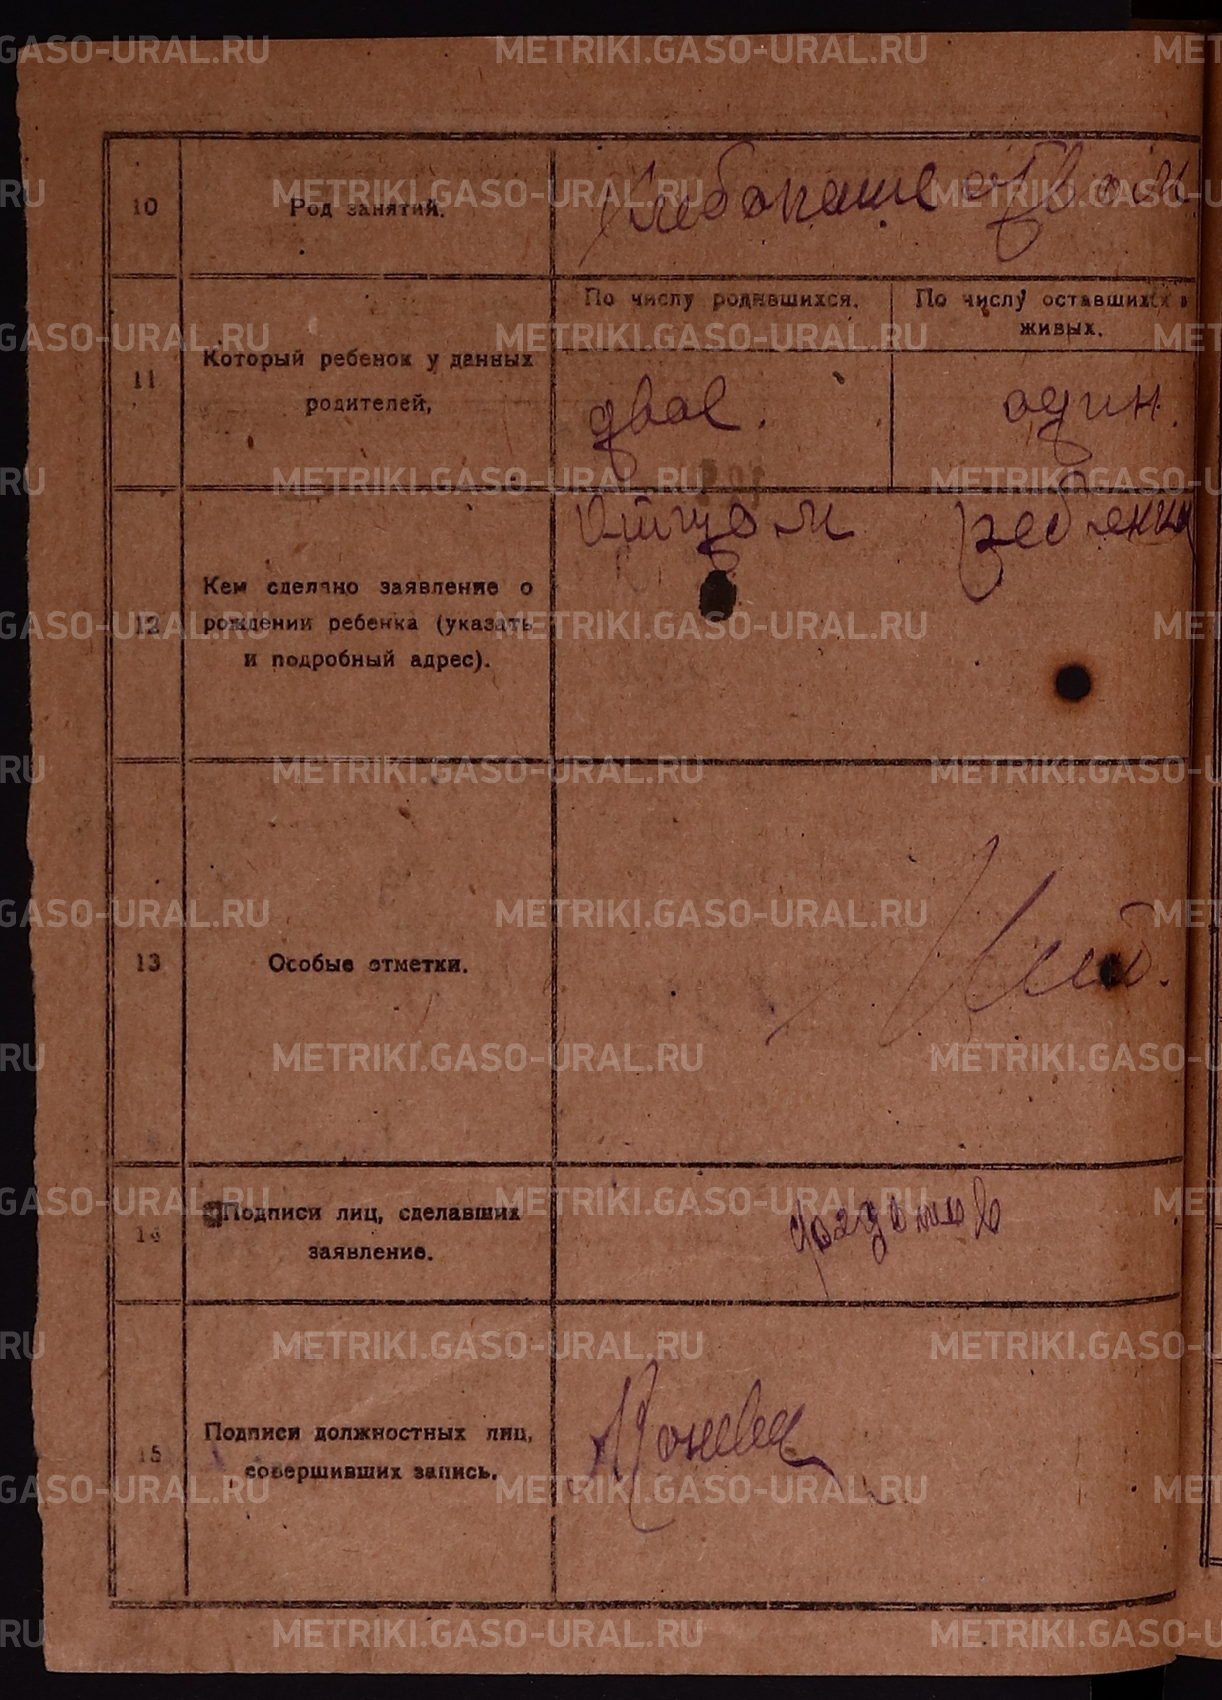 METRIKI.GASO-URAL.RU
10
Род занятий.
Хлебопашеством
11
Который ребенок у данных
родителей,
По числу родившихся.
По числу оставшихся в
живых.
двое.
один.
12
Кем сделано заявление о
рождении ребенка (указать
и подробный адрес).
Отцом ребенка
13
Особые отметки.
14
Подписи лиц, сделавших
заявление.
15
Подписи должностных лиц,
совершивших запись.